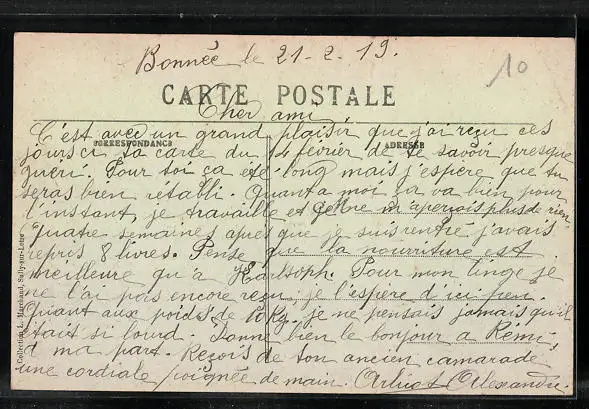 Bonnée le 21-2-19.
10
CARTE POSTALE
Cher ami
C'est avec un grand plaisir que j'ai reçu ces
CORRESPONDANCE
ADRESSE
jours ci ta carte du 14 février de te savoir presque
guéri. Pour toi ça été long mais j'espère que tu
seras bien rétabli. Quant a moi ça va bien pour
l'instant, je travaille et ne m'aperçais plus de rien.
Quatre semaines après que je suis rentré j'avais
repris 8 livres. Pense que la nourriture est
meilleure qu'a Pour mon linge je
ne l'ai pas encore reçu, je l'espère d'ici peu.
Quant aux poids de 10 Kg, je ne pensais jamais qu'il
était si lourd. Donne bien le bonjour a Rémi,
d ma part. Reçois de ton ancien camarade
une cordiale poignée de main. Alexandre.
Collection L. Marchand, Sully-sur-Loire